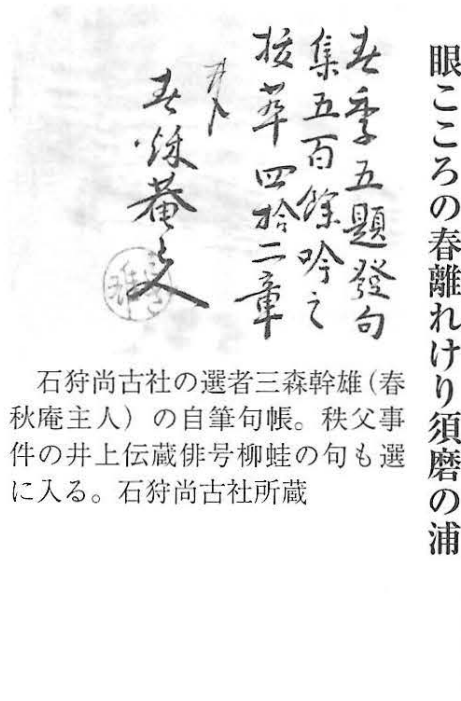 眼こころの春離れけり須磨の浦
春季五題發句
集五百餘吟之
抜萃四拾二章
春秌菴主人
石狩尚古社の選者三森幹雄（春
秋庵主人）の自筆句帳。秩父事
件の井上伝蔵俳号柳蛙の句も選
に入る。石狩尚古社所蔵